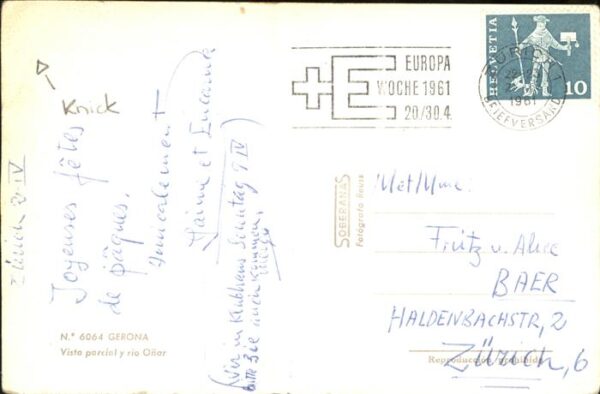 Knick
Zürich 2. IV
Joyeuses fêtes
de pâques.
Amicalement
Jaime et
wir im Klubhaus Sonntag 9 IV
bitte Sie auch kommen.
N.º 6064 GERONA
Vista parcial y río Oñar
EUROPA
WOCHE 1961
20/30.4.
HELVETIA
10
ZÜRICH 1
1961
BRIEFVERSAND
SOBERANAS
Fotógrafo Reuss
M et Mme
Fritz u. Alice
BAER
HALDENBACHSTR, 2
Zürich, 6
Reproducción prohibida